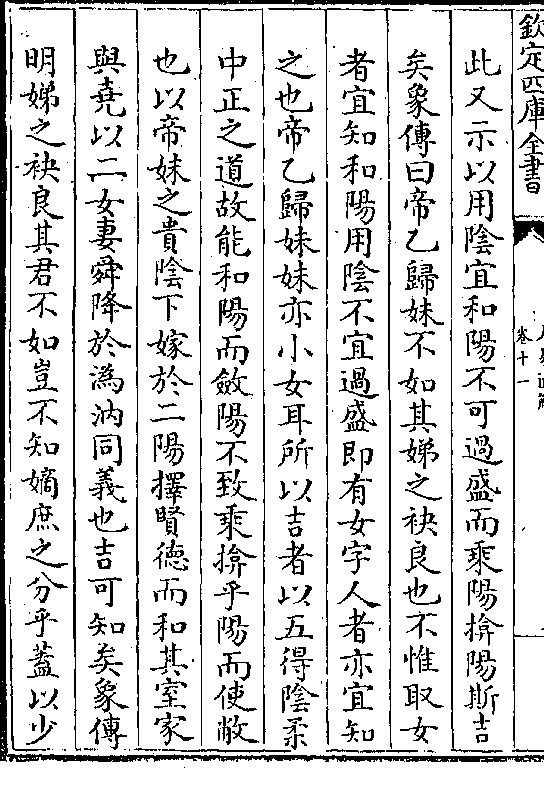 欽定四庫全書
卷十一
此又示以用陰宜和陽不可過盛而乘陽揜陽斯吉
矣象傳曰帝乙歸妹不如其娣之袂良也不惟取女
者宜知和陽用陰不宜過盛即有女字人者亦宜知
之也帝乙歸妹妹亦小女耳所以吉者以五得陰柔
中正之道故能和陽而斂陽不致乘揜乎陽而使敝
也以帝妹之貴陰下嫁於二陽擇賢德而和其室家
與堯以二女妻舜降於溈汭同義也吉可知矣象傳
明娣之袂良其君不如豈不知嫡庶之分乎蓋以少